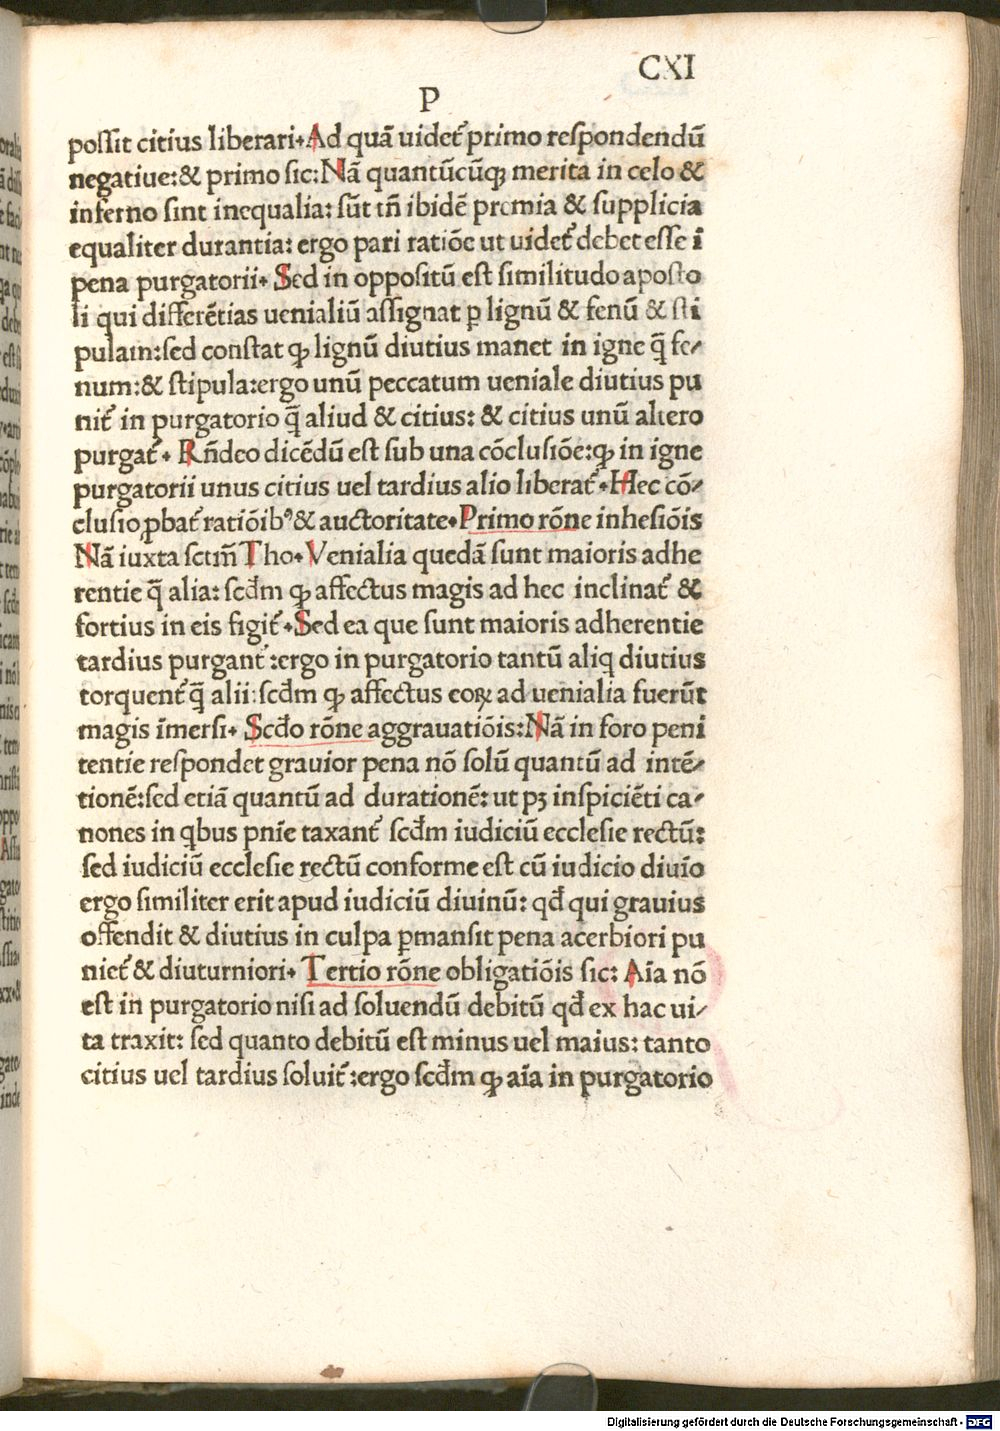 CXI
P
possit citius liberari. Ad quā uidet᷑ primo respondendū
negatiue: & primo sic: Nā quantūcūq; merita in celo &
inferno sint inequalia: sūt tn̄ ibidē premia & supplicia
equaliter durantia: ergo pari ratiōe ut uidet᷑ debet esse ī
pena purgatorii. Sed in oppositū est similitudo aposto
li qui differētias uenialiū assignat ꝑ lignū & fenū & sti
pulam: sed constat ꝙ lignū diutius manet in igne q̄ fe-
num: & stipula: ergo unū peccatum ueniale diutius pu
nit᷑ in purgatorio q̄ aliud & citius: & citius unū altero
purgat᷑. Rn̄deo dicēdū est sub una cōclusiōe: ꝙ in igne
purgatorii unus citius uel tardius alio liberat᷑. Hec cō-
clusio ꝓbat᷑ ratiōibꝰ & auctoritate. Primo rōne inhesiōis
Nā iuxta sctm̄ Tho. Venialia quedā sunt maioris adhe
rentie q̄ alia: scd̄m ꝙ affectus magis ad hec inclinat᷑ &
fortius in eis figit᷑. Sed ea que sunt maioris adherentie
tardius purgant᷑: ergo in purgatorio tantū aliq diutius
torquent᷑ q̄ alii: scd̄m ꝙ affectus eoꝝ ad uenialia fuerūt
magis īmersi. Scd̄o rōne aggrauatiōis: Nā in foro peni
tentie respondet grauior pena nō solū quantū ad intē-
tionē: sed etiā quantū ad durationē: ut pꝫ inspiciēti ca-
nones in qbus pnīe taxant᷑ scd̄m iudiciū ecclesie rectū:
sed iudiciū ecclesie rectū conforme est cū iudicio diuīo
ergo similiter erit apud iudiciū diuinū: qd̄ qui grauius
offendit & diutius in culpa ꝑmansit pena acerbiori pu
niet᷑ & diuturniori. Tertio rōne obligatiōis sic: Aīa nō
est in purgatorio nisi ad soluendū debitū qd̄ ex hac ui-
ta traxit: sed quanto debitū est minus uel maius: tanto
citius uel tardius soluit᷑: ergo scd̄m ꝙ aīa in purgatorio
Digitalisierung gefördert durch die Deutsche Forschungsgemeinschaft - DFG